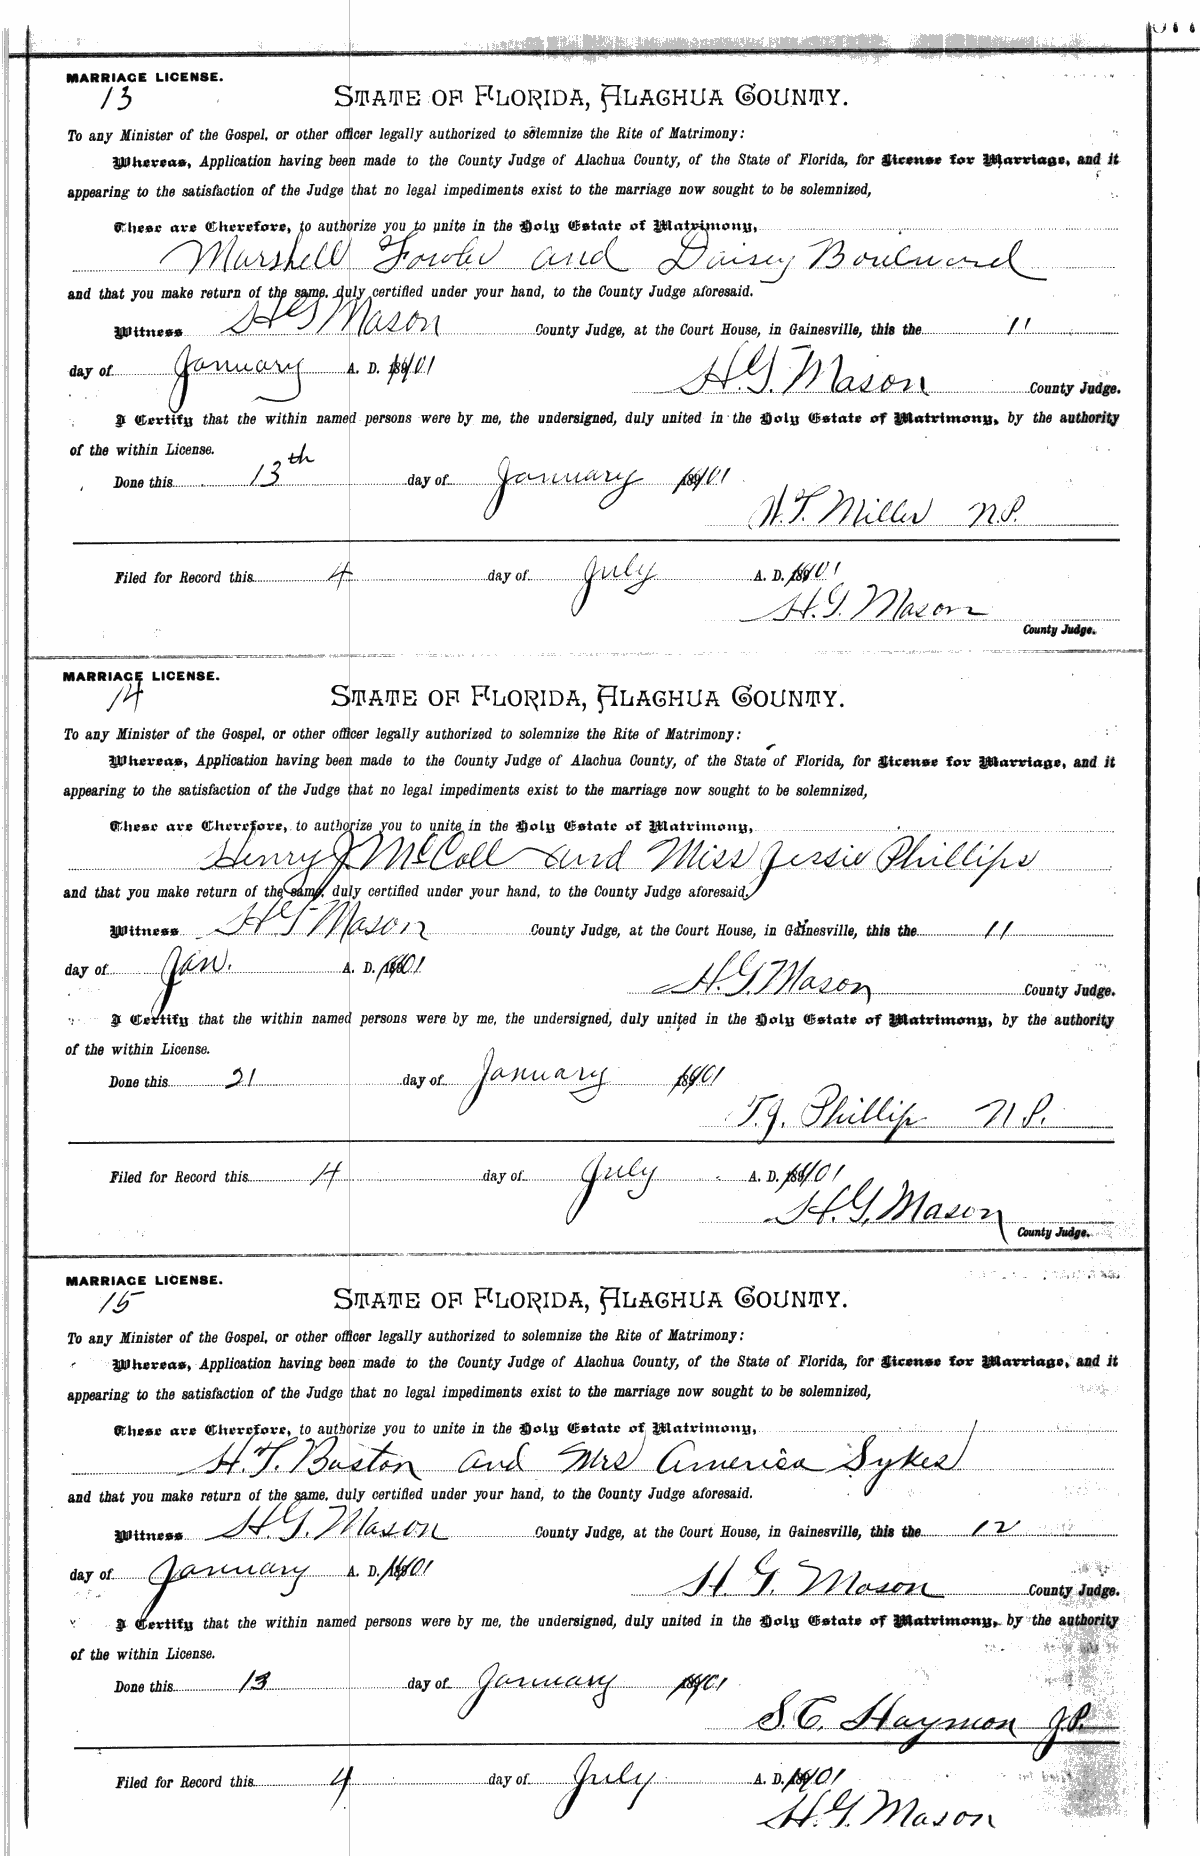 MARRIAGE LICENSE.
13
STATE OF FLORIDA, ALACHUA COUNTY.
To any Minister of the Gospel, or other officer legally authorized to solemnize the Rite of Matrimony:
Whereas, Application having been made to the County Judge of Alachua County, of the State of Florida, for License for Marriage, and it
appearing to the satisfaction of the Judge that no legal impediments exist to the marriage now sought to be solemnized,
These are Therefore, to authorize you to unite in the Holy Estate of Matrimony,
Marshell Fowler and Daisey Boulward
and that you make return of the same, duly certified under your hand, to the County Judge aforesaid.
Witness H G Mason County Judge, at the Court House, in Gainesville, this the 11
day of January A. D. 1901
H. G. Mason County Judge.
I Certify that the within named persons were by me, the undersigned, duly united in the Holy Estate of Matrimony, by the authority
of the within License.
Done this 13th day of January 1901
W. T. Miller N.P.
Filed for Record this 4 day of July A. D. 1901
H. G. Mason
County Judge.
MARRIAGE LICENSE.
14
STATE OF FLORIDA, ALACHUA COUNTY.
To any Minister of the Gospel, or other officer legally authorized to solemnize the Rite of Matrimony:
Whereas, Application having been made to the County Judge of Alachua County, of the State of Florida, for License for Marriage, and it
appearing to the satisfaction of the Judge that no legal impediments exist to the marriage now sought to be solemnized,
These are Therefore, to authorize you to unite in the Holy Estate of Matrimony,
Henry J McColl and Miss Jessie Phillips
and that you make return of the same, duly certified under your hand, to the County Judge aforesaid.
Witness H G Mason County Judge, at the Court House, in Gainesville, this the 11
day of Jan. A. D. 1901
H. G. Mason County Judge.
I Certify that the within named persons were by me, the undersigned, duly united in the Holy Estate of Matrimony, by the authority
of the within License.
Done this 21 day of January 1901
T. J. Phillips N.P.
Filed for Record this 4 day of July A. D. 1901
H. G. Mason
County Judge.
MARRIAGE LICENSE.
15
STATE OF FLORIDA, ALACHUA COUNTY.
To any Minister of the Gospel, or other officer legally authorized to solemnize the Rite of Matrimony:
Whereas, Application having been made to the County Judge of Alachua County, of the State of Florida, for License for Marriage, and it
appearing to the satisfaction of the Judge that no legal impediments exist to the marriage now sought to be solemnized,
These are Therefore, to authorize you to unite in the Holy Estate of Matrimony,
H. T. Baston and Mrs America Sykes
and that you make return of the same, duly certified under your hand, to the County Judge aforesaid.
Witness H. G. Mason County Judge, at the Court House, in Gainesville, this the 12
day of January A. D. 1901
H G. Mason County Judge.
I Certify that the within named persons were by me, the undersigned, duly united in the Holy Estate of Matrimony, by the authority
of the within License.
Done this 13 day of January 1901
S. C. Haymon J.P.
Filed for Record this 4 day of July A. D. 1901
H. G. Mason